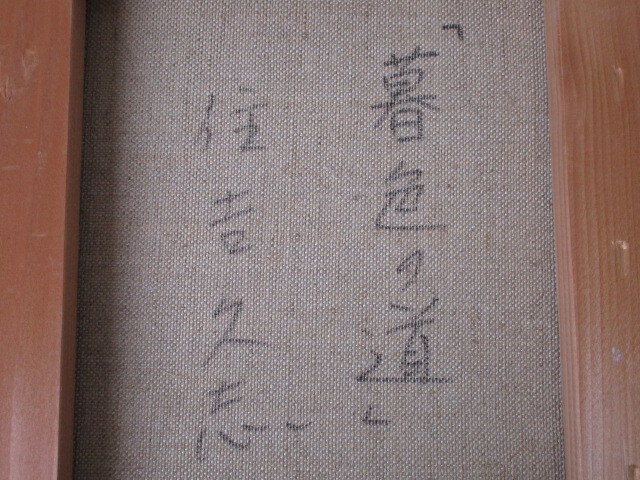 「暮色の道」
住吉久志